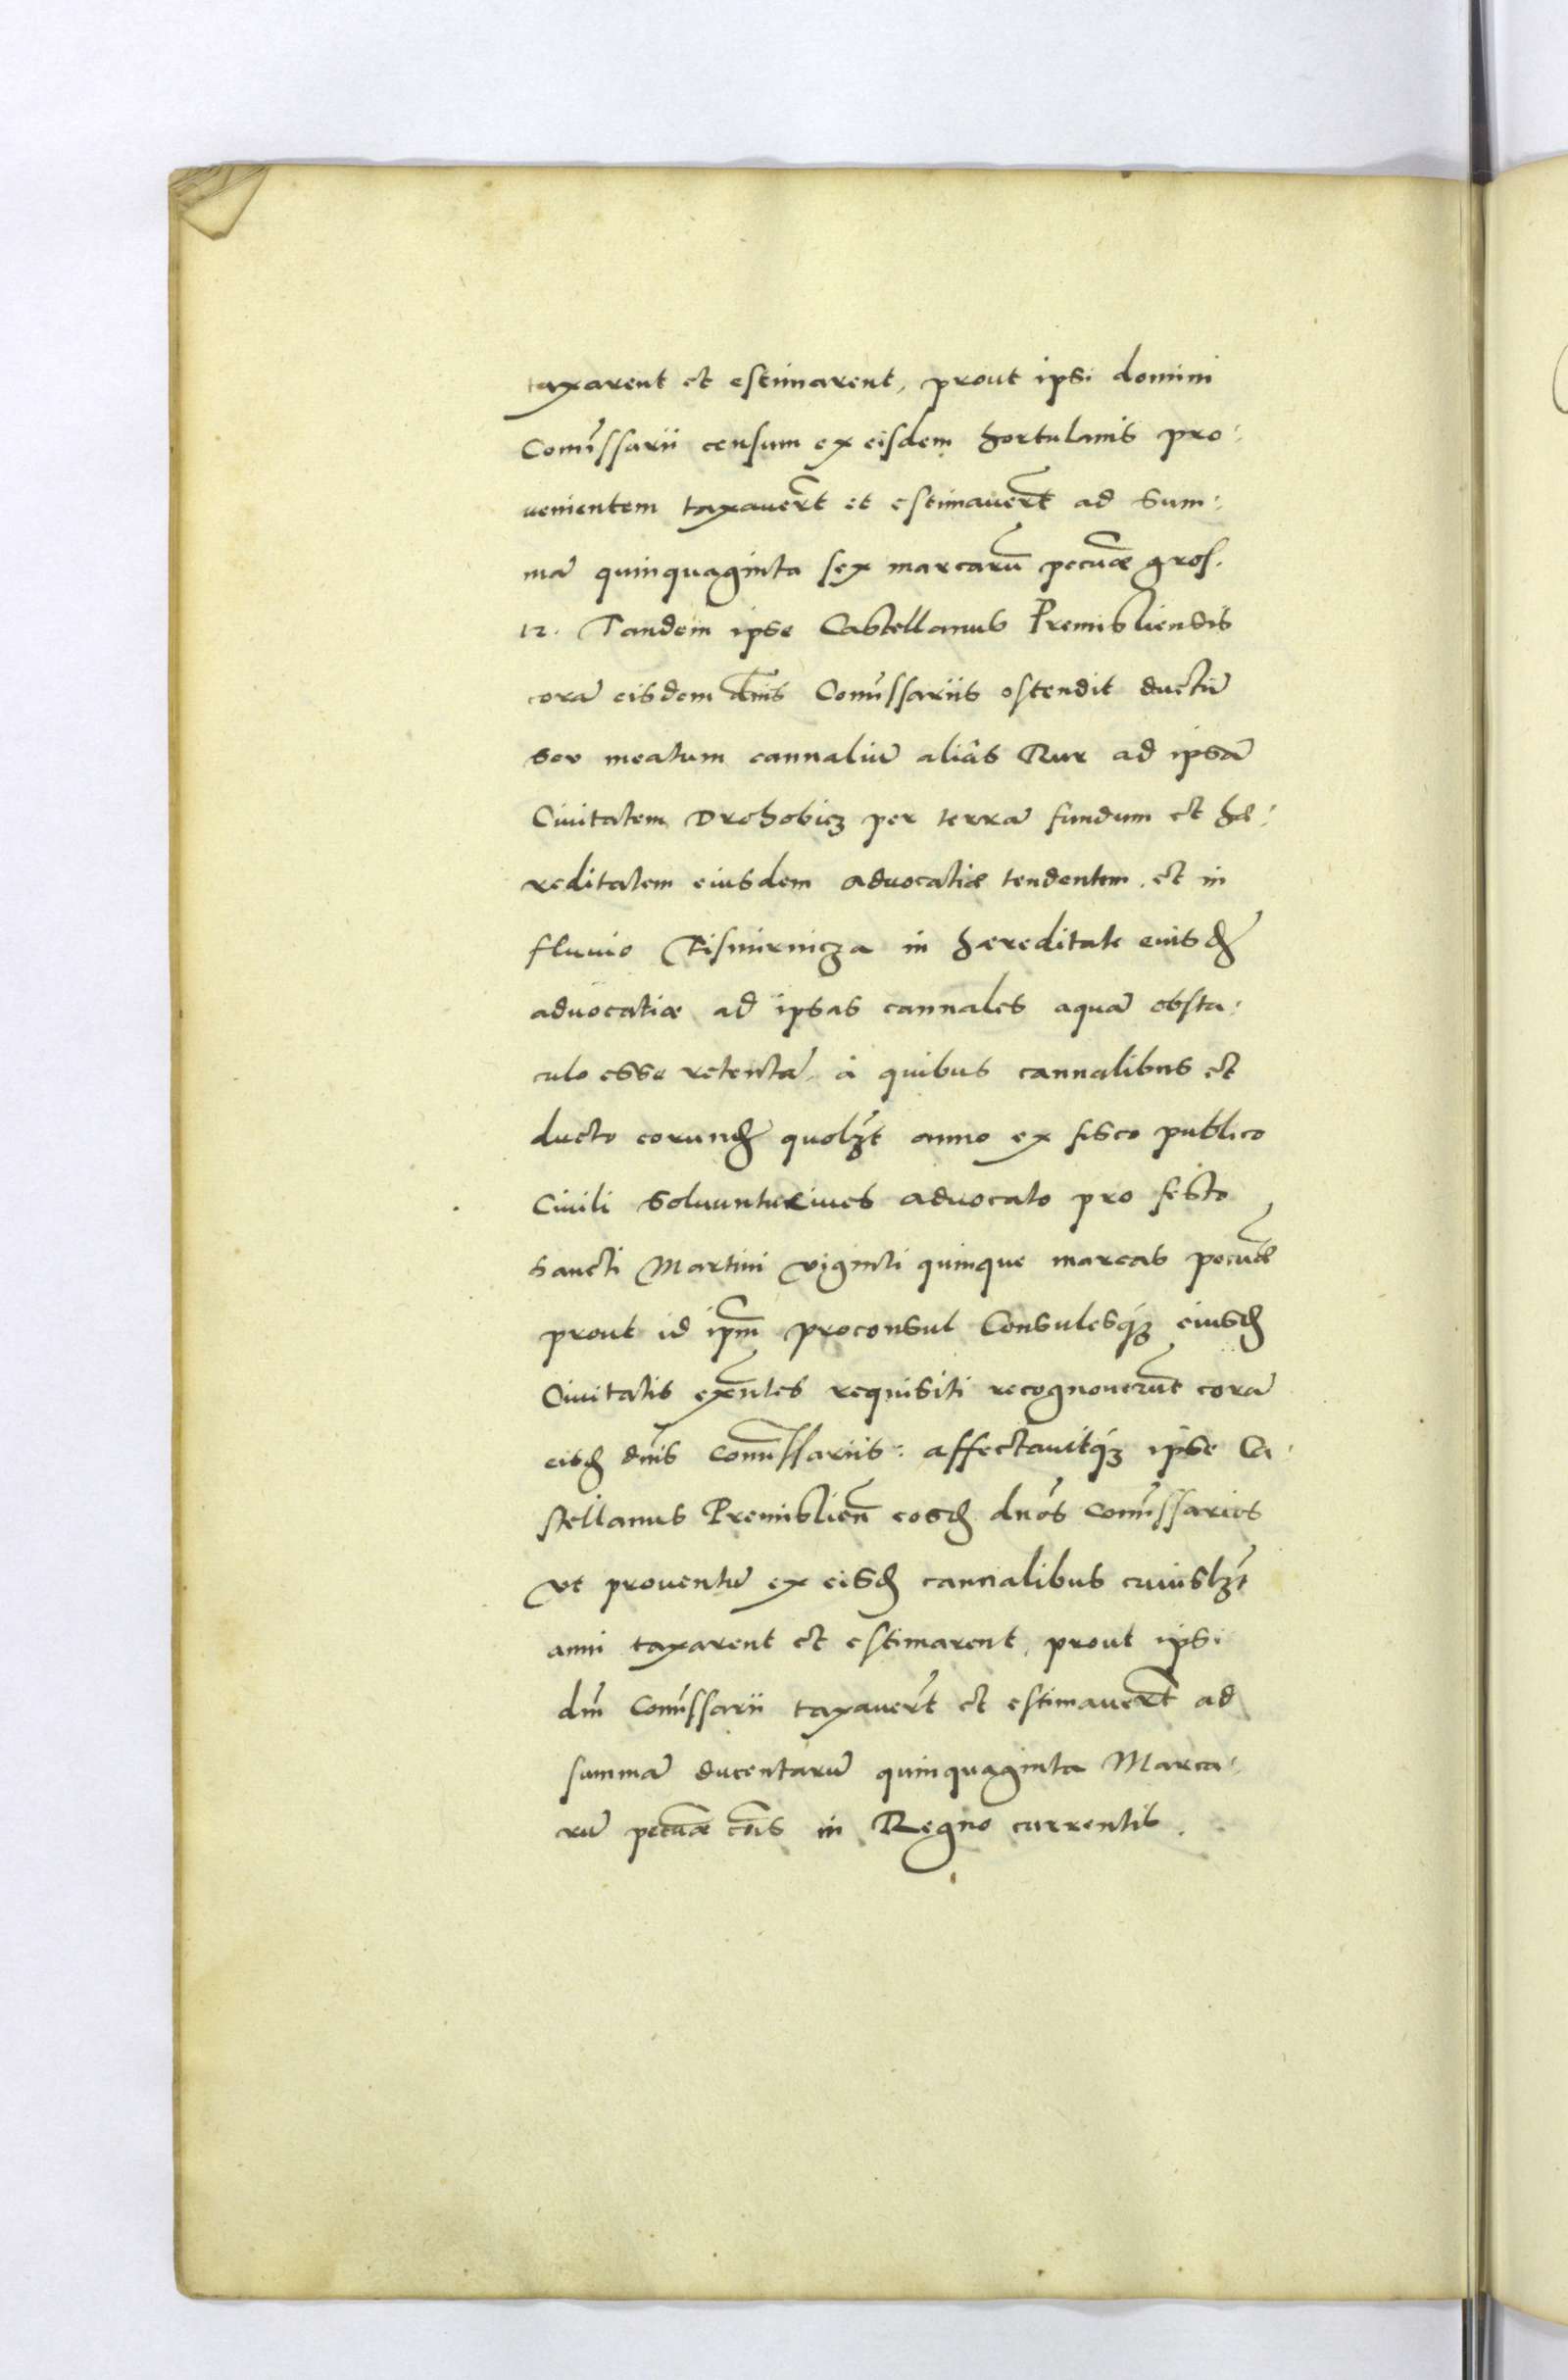 taxarent et estimarent, prout ipsi domini
Com̃issarii censum ex eisdem hortulanis pro:
uenientem taxauer̃t et estimauer̃t ad Sum:
mã quinquaginta sex marcarũ pecũæ gros.
12. Tandem ipse Castellanus Premisliensis
corã eisdem dñis Com̃issariis ostendit ductũ
seu meatum cannaliũ aliâs Rur ad ipsã
Ciuitatem Drohobicz per terrã fundum et hæ:
reditatem eiusdem aduocatiæ tendentem, et in
fluuio Tismirnicza in hæreditate eiusdẽ
aduocatiæ ad ipsas cannales aquã obsta:
culo esse retentã, à quibus cannalibus et
ducto eorundẽ quolibꝫt anno ex fisco publico
Ciuili Soluuntur aduocato pro festo
Sancti Martini viginti quinque marcas pecũæ
prout id ip̃m proconsul Consulesqꝫ eiusd
Ciuitatis exñtes requisiti recognouerũt corã
eisd dñis Com̃issariis: affectauitqꝫ ipse Ca:
stellanus Premislieñ eosd dños Com̃issarios
vt prouentũ ex eisd cannalibus cuiuslꝫt
anni taxarent et estimarent, prout ipsi
dñi Com̃issarii taxauer̃t et estimauer̃t ad
summã ducentarũ quinquaginta Marca:
rũ pecũæ cõis in Regno currentis.